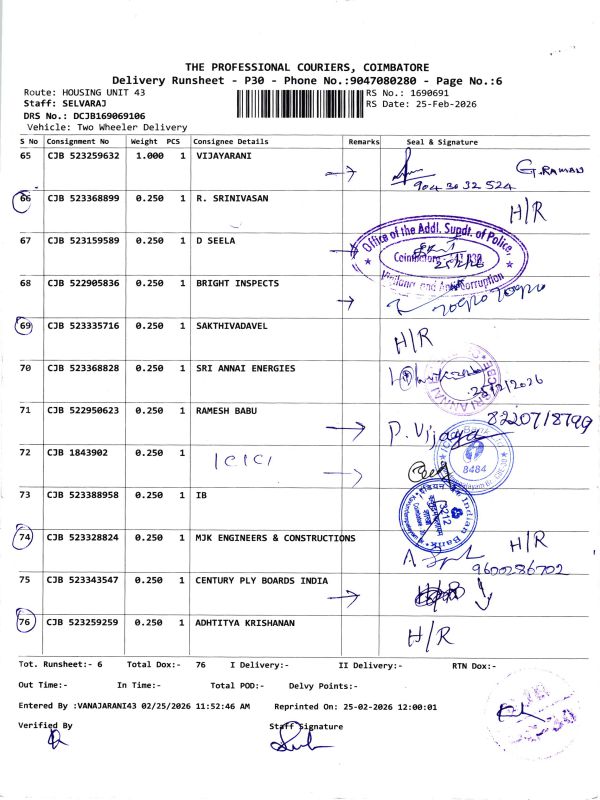 THE PROFESSIONAL COURIERS, COIMBATORE
Delivery Runsheet - P30 - Phone No.:9047080280 - Page No.:6
Route: HOUSING UNIT 43
RS No.: 1690691
Staff: SELVARAJ
RS Date: 25-Feb-2026
DRS No.: DCJB169069106
Vehicle: Two Wheeler Delivery
S No Consignment No Weight PCS Consignee Details Remarks Seal & Signature
65 CJB 523259632 1.000 1 VIJAYARANI G.RAMAN
9043032524
66 CJB 523368899 0.250 1 R. SRINIVASAN H/R
67 CJB 523159589 0.250 1 D SEELA
Office of the Addl. Supdt. of Police,
Coimbatore
25/2/26
Vigilance and Anti Corruption
68 CJB 522905836 0.250 1 BRIGHT INSPECTS
69 CJB 523335716 0.250 1 SAKTHIVADAVEL H/R
70 CJB 523368828 0.250 1 SRI ANNAI ENERGIES
25/2/2026
71 CJB 522950623 0.250 1 RAMESH BABU P. Vijaya 8220718799
72 CJB 1843902 0.250 1 ICICI
8484
73 CJB 523388958 0.250 1 IB
Indian Bank
74 CJB 523328824 0.250 1 MJK ENGINEERS & CONSTRUCTIONS H/R
9600286702
75 CJB 523343547 0.250 1 CENTURY PLY BOARDS INDIA
76 CJB 523259259 0.250 1 ADHTITYA KRISHANAN H/R
Tot. Runsheet:- 6 Total Dox:- 76 I Delivery:- II Delivery:- RTN Dox:-
Out Time:- In Time:- Total POD:- Delvy Points:-
Entered By :VANAJARANI43 02/25/2026 11:52:46 AM Reprinted On: 25-02-2026 12:00:01
Verified By Staff Signature